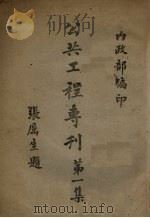 內政部編印
公共工程專刊第一集
張厲生題